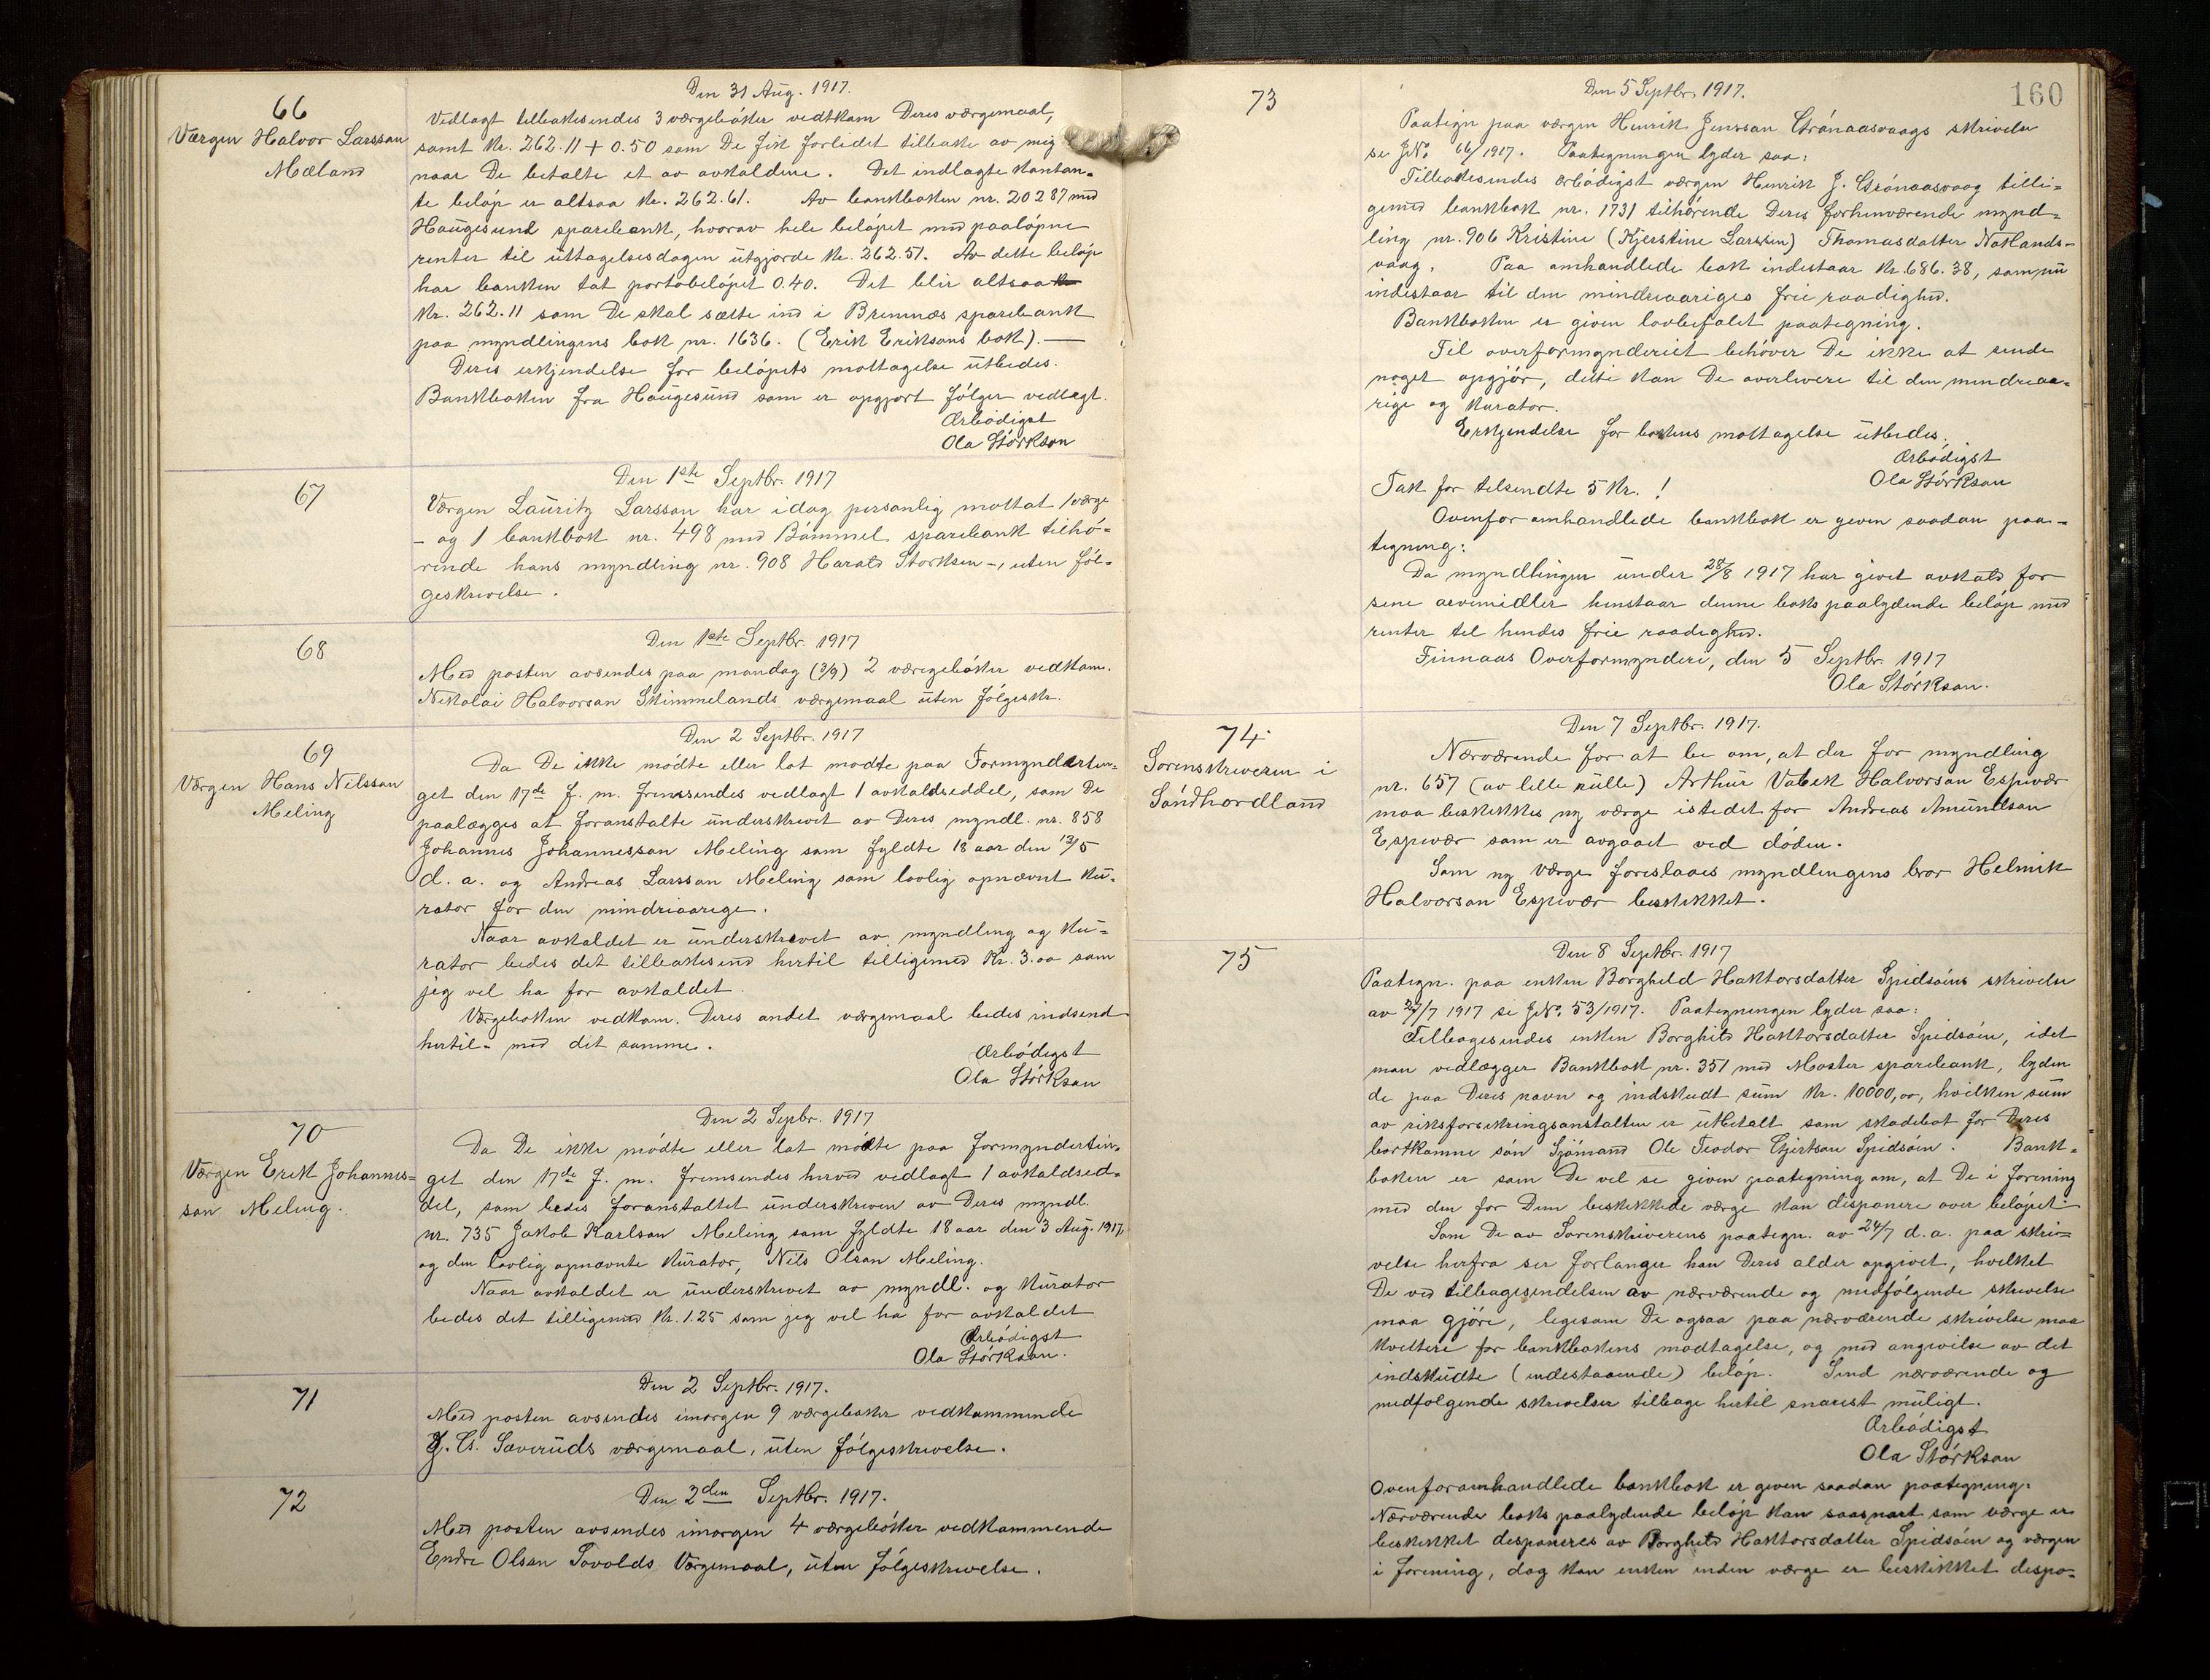 66
Værgen Halvor Larsson
Mæland
Den 31 Aug. 1917.
Vedlagt tilbakesendes 3 værgebøker vedkom Deres værgemaal,
samt kr. 262.11 + 0.50 som De fik forlidet tilbake av mig
naar De betalte et av avkaldene. Det indlagte kontan-
te beløp er altsaa kr. 262.61. Av bankboken nr. 20287 med
Haugesund sparebank, hvorav hele beløpet med paaløpne
renter til uttagelsesdagen utgjorde kr. 262.51. Av dette beløp
har banken tat portobeløpet 0.40. Det blir altsaa
kr. 262.11 som De skal sætte ind i Bremnæs sparebank
paa myndlingens bok nr. 1636. (Erik Eriksons bok). —
Deres erkjendelse for beløpets mottagelse utbedes.
Bankboken fra Haugesund som er opgjort følger vedlagt.
Ærbødigst
Ola Størkson
67
Den 1ste Septbr. 1917
Værgen Lauritz Larsson har idag personlig mottat 1 værge
- og 1 bankbok nr. 498 med Bømmel sparebank tilhø-
rende hans myndling nr. 908 Harald Storksen -, uten føl-
geskrivelse.
68
Den 1ste Septbr. 1917
Med posten avsendes paa mandag (3/9) 2 værgebøker vedkom.
Nikolai Halvorsan Skimmelands værgemaal uten følgeskr.
69
Værgen Hans Nilsson
Meling
Den 2 Septbr. 1917
Da De ikke mødte eller lot mødte paa Formynderten-
get den 17de f. m. fremsendes vedlagt 1 avkaldseddel, som De
paalægges at foranstalte underskrevet av Deres myndl. nr. 858
Johannes Johannesson Meling som fyldte 18 aar den 13/5
d. a. og Andreas Larsson Meling som lovlig opnævnt ku-
rator for den mindreaarige.
Naar avkaldet er underskrevet av myndling og ku-
rator bedes det tilbakesend hertil tilligemed Kr. 3.00 som
jeg vil ha for avkaldet.
Værgeboken vedkom. Deres andet værgemaal bedes indsend
hertil - med dit samme.
Ærbødigst
Ola Størkson
70
Værgen Erik Johannes-
son Meling.
Den 2 Sepbr. 1917
Da De ikke mødte eller lot mødte paa formyndertin-
get den 17de f. m. fremsendes herved vedlagt 1 avkaldsed-
del, som bedes foranstaltet underskreven av Deres myndl.
nr. 735 Jakob Karlson Meling som fyldte 18 aar den 3 Aug. 1917,
og den lovlig opnævnte kurator, Nils Olson Meling.
Naar avkaldet er underskrevet av myndl. og kurator
bedes det tilligemed kr. 1.25 som jeg vel ha for avkaldet
Ærbødigst
Ola Størkson.
71
Den 2 Septbr. 1917.
Med posten avsendes imorgen 9 værgebøker vedkommende
J. G. Sæveruds værgemaal, uten følgeskrivelse.
72
Den 2den Septbr. 1917.
Med posten avsendes imorgen 4 værgebøker vedkommende
Endre Olson Tovolds Værgemaal, uten følgeskrivelse.
160
73
Den 5 Septbr. 1917.
Paategn paa værgen Henrik Jensson Grønaasvaags skrivelse
se JNo 66/1917. Paategningen lyder saa:
Tilbakesendes ærbødigst værgen Henrik J. Grønaasvaag tilli-
gemed bankbok nr. 1731 tilhørende Deres forhenværende mynd-
ling nr. 906 Kristine (Kjerstine Larssen) Thomasdatter Notlands-
vaag. Paa omhandlede bok indestaar kr. 686.38, som nu
indestaar til den mindreaariges frie raadighed.
Bankboken er given lovbefalet paategning.
Til overformynderiet behøver De ikke at sende
noget opgjør, dette kan De overlevere til den mindreaa-
rige og kurator.
Erkjendelse for bokens mottagelse utbedes.
Ærbødigst
Ola Størkson
Tak for tilsendte 5 kr. !
Ovenfor omhandlede bankbok er given saadan paa-
tegning:
Da myndlingen under 28/8 1917 har givet avkald for
sine arvemidler henstaar denne boks paalydende beløp med
renter til hendes frie raadighed.
Finnaas Overformynderi, den 5 Septbr. 1917
Ola Størkson.
74
Sorenskriveren i
Søndhordland
Den 7 Septbr. 1917.
Nærværende for at be om, at der for myndling
nr. 657 (av lille rulle) Arthur Valek Halvorson Espevær
maa beskikkes ny værge istedet for Andreas Amundson
Espevær som er avgaaet ved døden.
Som ny værge foreslaaes myndlingens bror Helmik
Halvorson Espevær beskikket.
75
Den 8 Septbr. 1917
Paategn. paa enken Borghild Haktorsdatter Spidsøens skrivelse
av 27/7 1917 se JNo. 53/1917. Paategningen lyder saa:
Tilbagesendes enken Borghild Haktorsdatter Spidsøen, idet
man vedlægger Bankbok nr. 351 med Moster sparebank, lyden
de paa Deres navn og indskudt sum kr. 10000,00, hvilken sum
av riksforsikringsanstalten er utbetalt som skadebot for Deres
bortkomne søn Sjømand Ole Teodor Gjertson Spidsøen. Bank-
boken er som De vil se given paategning om, at De i forening
med den for Dem beskikkede værge kan disponere over beløpet.
Som De av Sorenskriverens paategn. av 24/7 d. a. paa skri-
velse herfra ser forlanger han Deres alder opgivet, hvilket
De ved tilbagesendelsen av nærværende og medfølgende skrivelse
maa gjøre, ligesom De ogsaa paa nærværende skrivelse maa
kvittere for bankbokens modtagelse, og med angivelse av det
indskudte (indestaaende) beløp. Send nærværende og
medfølgende skrivelser tilbage hertil snarest muligt.
Ærbødigst
Ola Størkson
Ovenforomhandlede bankbok er given saadan paategning:
Nærværende boks paalydende beløp kan saasnart som værge er
beskikket desponeres av Borghild Haktorsdatter Spidsøen og værgen
i forening, dog kan enken inden værge er beskikket despo-